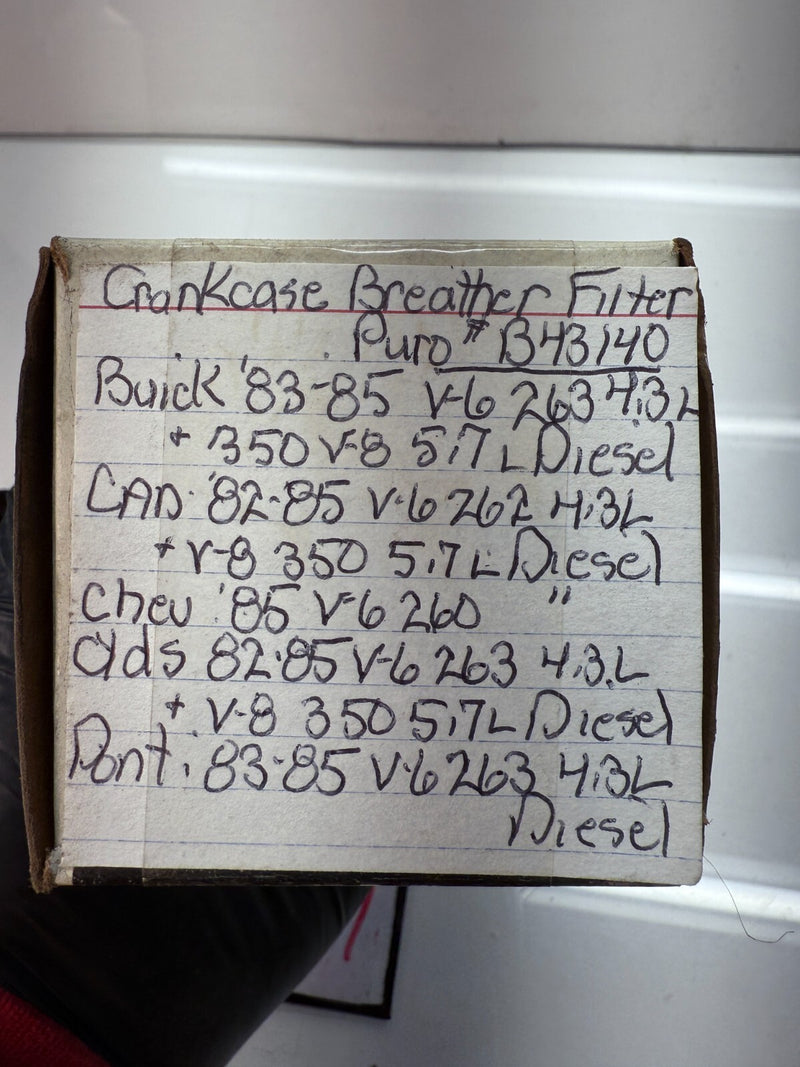 Crankcase Breather Filter
Puro # B43140
Buick '83-85 V-6 263 4.3L
+ 350 V-8 5.7L Diesel
CAD. '82-85 V-6 262 4.3L
+ V-8 350 5.7L Diesel
Chev '85 V-6 260 "
Olds 82-85 V-6 263 4.3.L
+ V-8 350 5.7L Diesel
Pont. 83-85 V-6 263 4.3L
Diesel